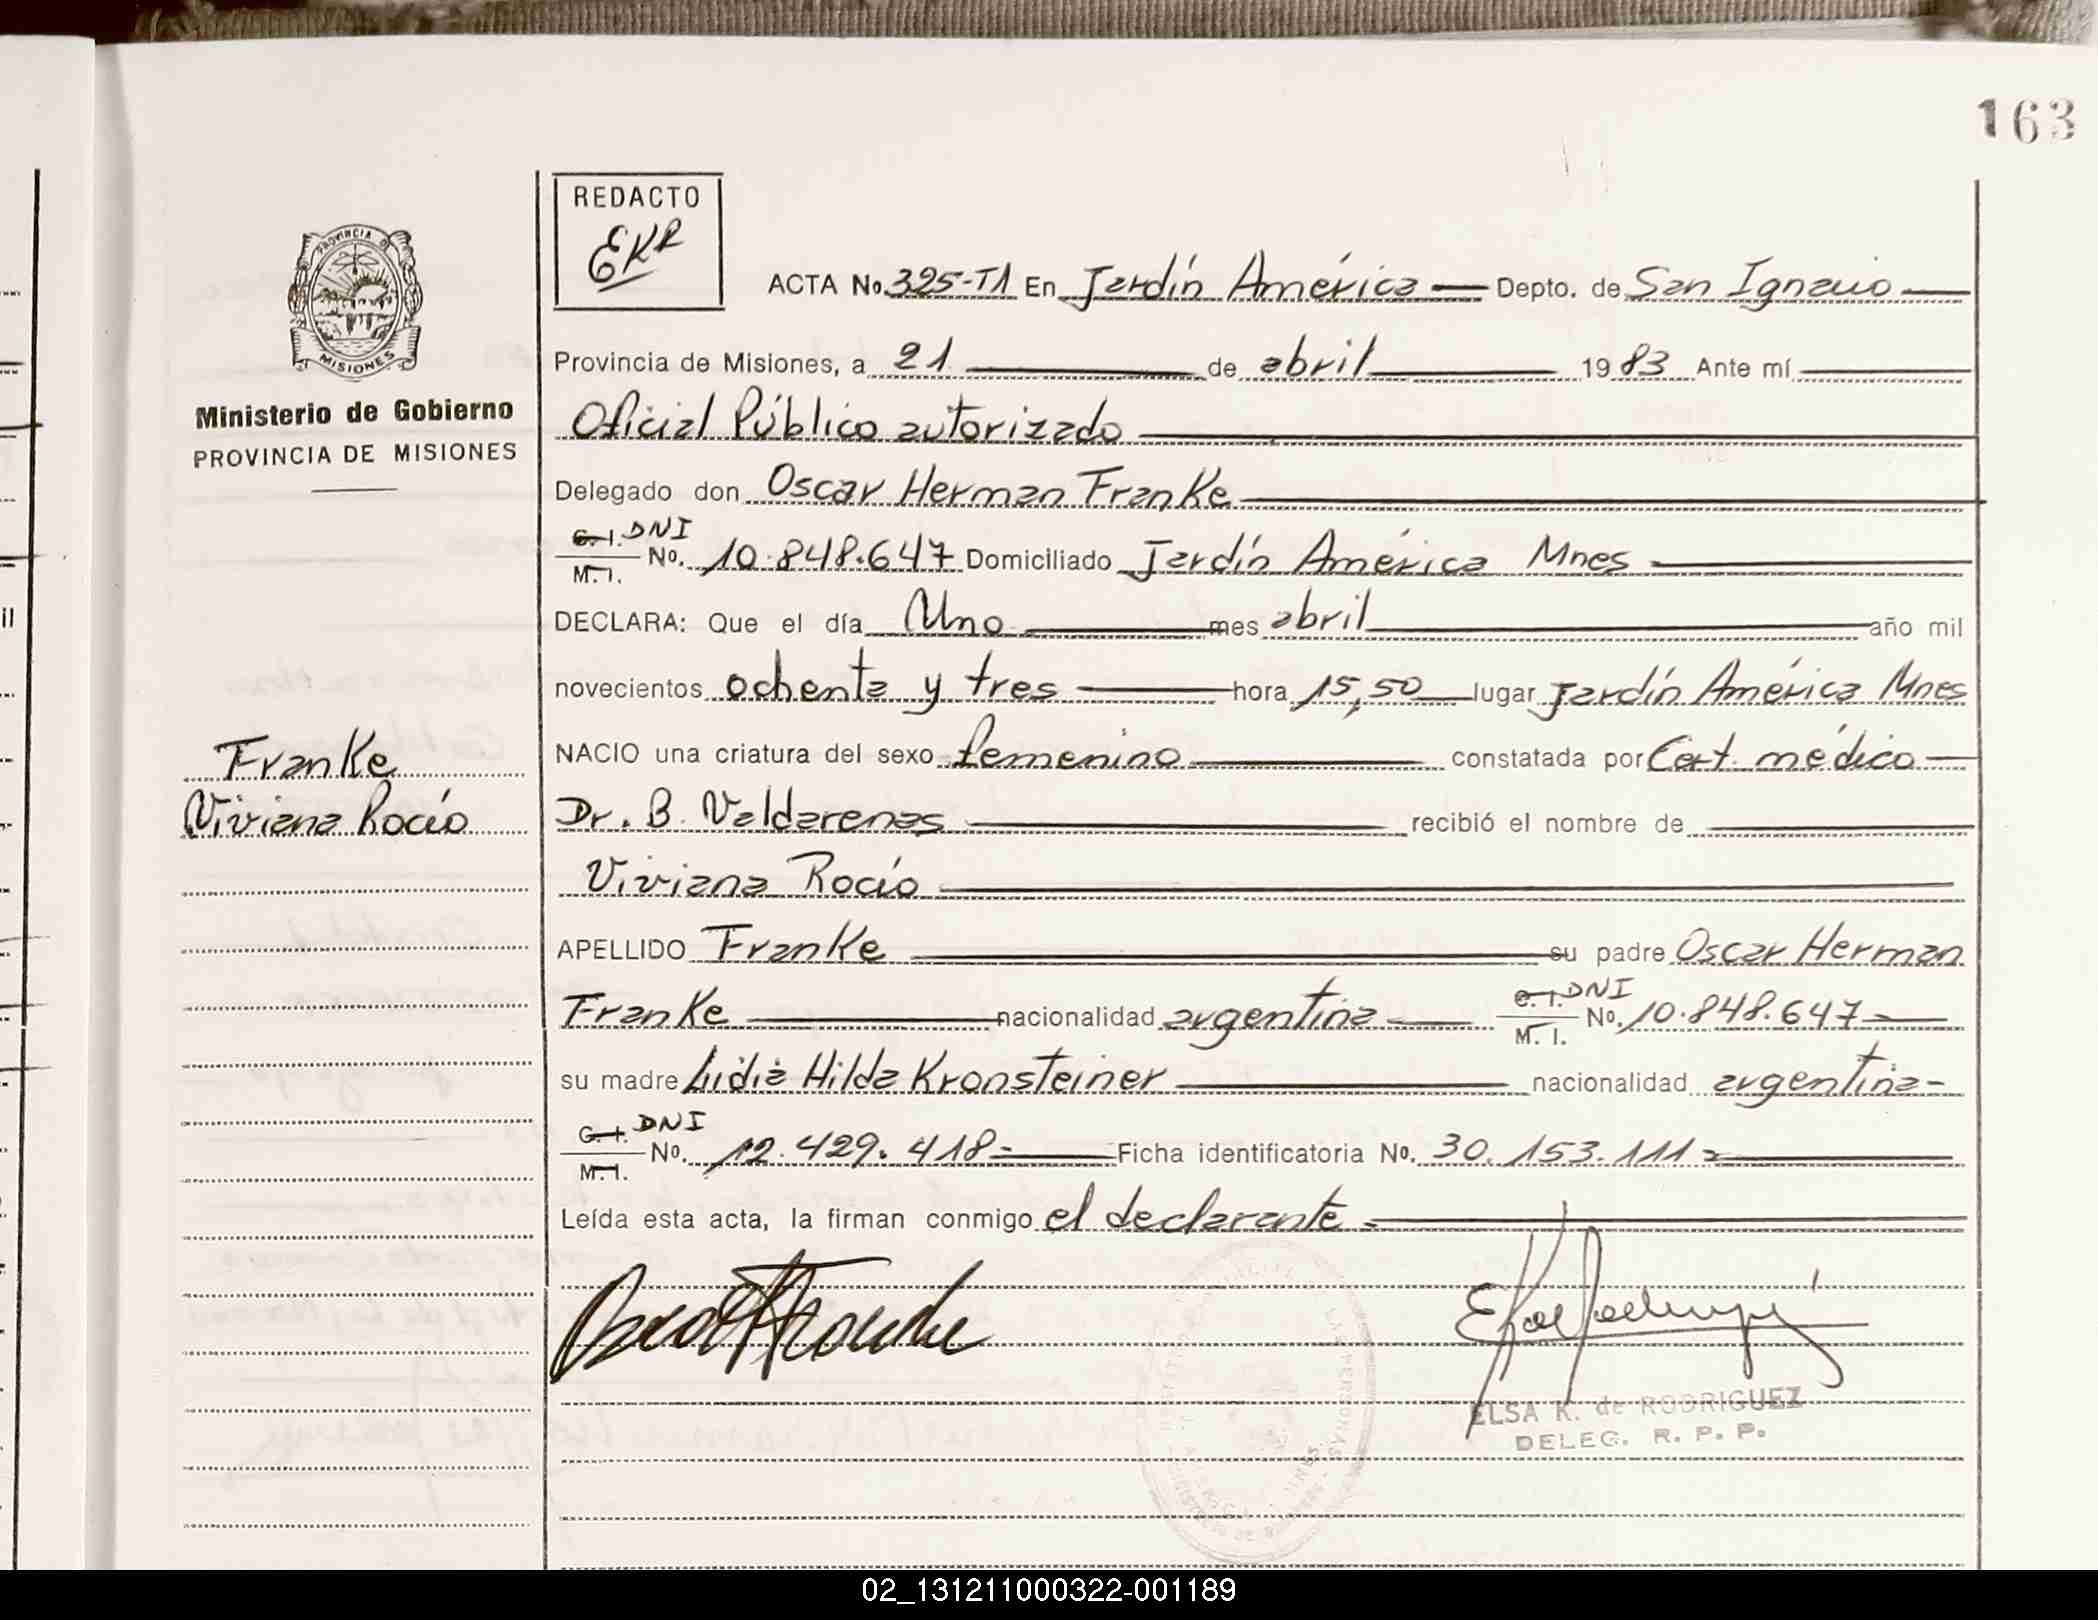 163
REDACTO
EKR
PROVINCIA D
MISIONES
Ministerio de Gobierno
PROVINCIA DE MISIONES
ACTA No. 325-T1 En Jardín América — Depto. de San Ignacio —
Provincia de Misiones, a 21 — de abril — 1983 Ante mí —
Oficial Público autorizado —
Delegado don Oscar Herman Franke —
C. I. DNI
M. I. No. 10.848.647 Domiciliado Jardín América Mnes —
DECLARA: Que el día Uno — mes abril — año mil
novecientos ochenta y tres — hora 15,50 — lugar Jardín América Mnes
NACIO una criatura del sexo femenino — constatada por Cert. médico —
Dr. B. Valdarenas — recibió el nombre de —
Viviana Rocío —
APELLIDO Franke — su padre Oscar Herman
Franke — nacionalidad argentina — C. I. DNI
M. I. No. 10.848.647 —
su madre Lidia Hilda Kronsteiner — nacionalidad argentina -
C. I. DNI
M. I. No. 12.429.418 - — Ficha identificatoria No. 30.153.111 = —
Leída esta acta, la firman conmigo el declarante. —
Franke
Viviana Rocío
ELSA K. de RODRIGUEZ
DELEG. R. P. P.
il
02_131211000322-001189